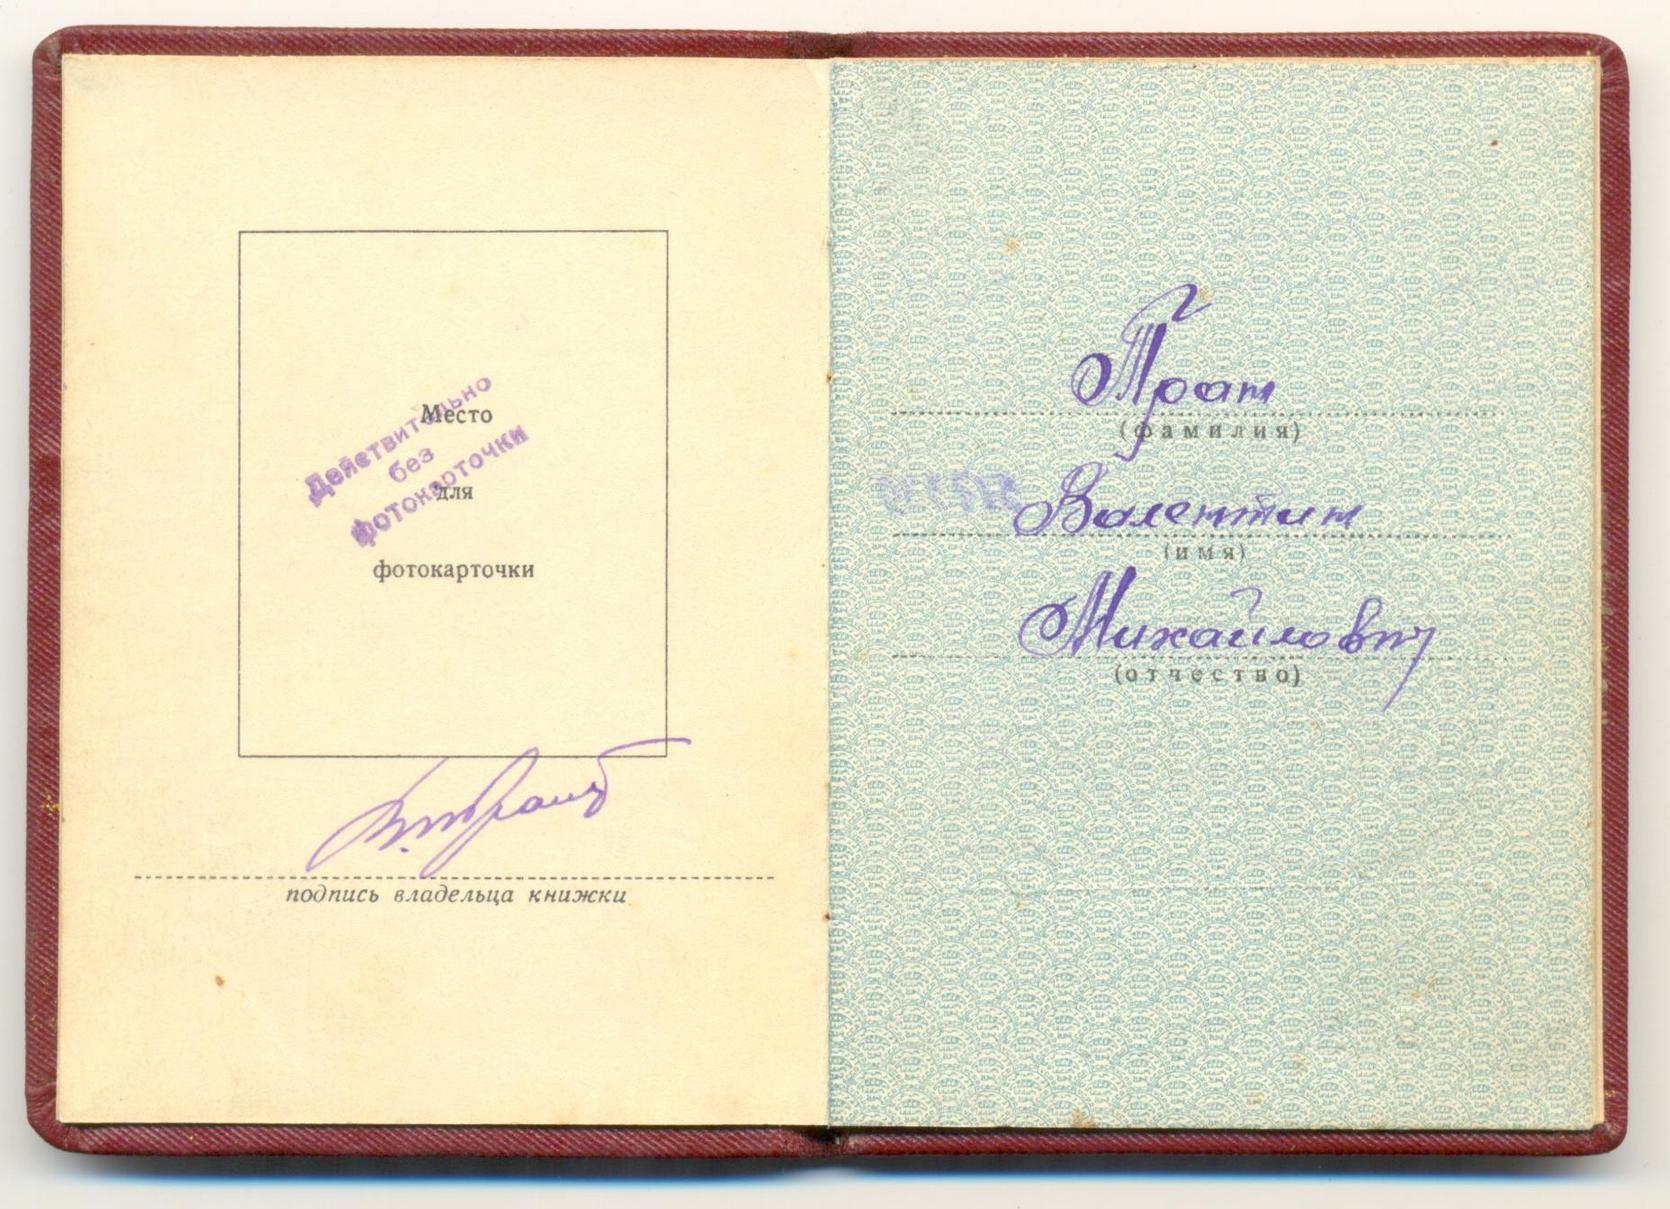 Место
для
фотокарточки
Действительно
без
фотокарточки
подпись владельца книжки
Прат
(фамилия)
Валентин
(имя)
Михайлович
(отчество)